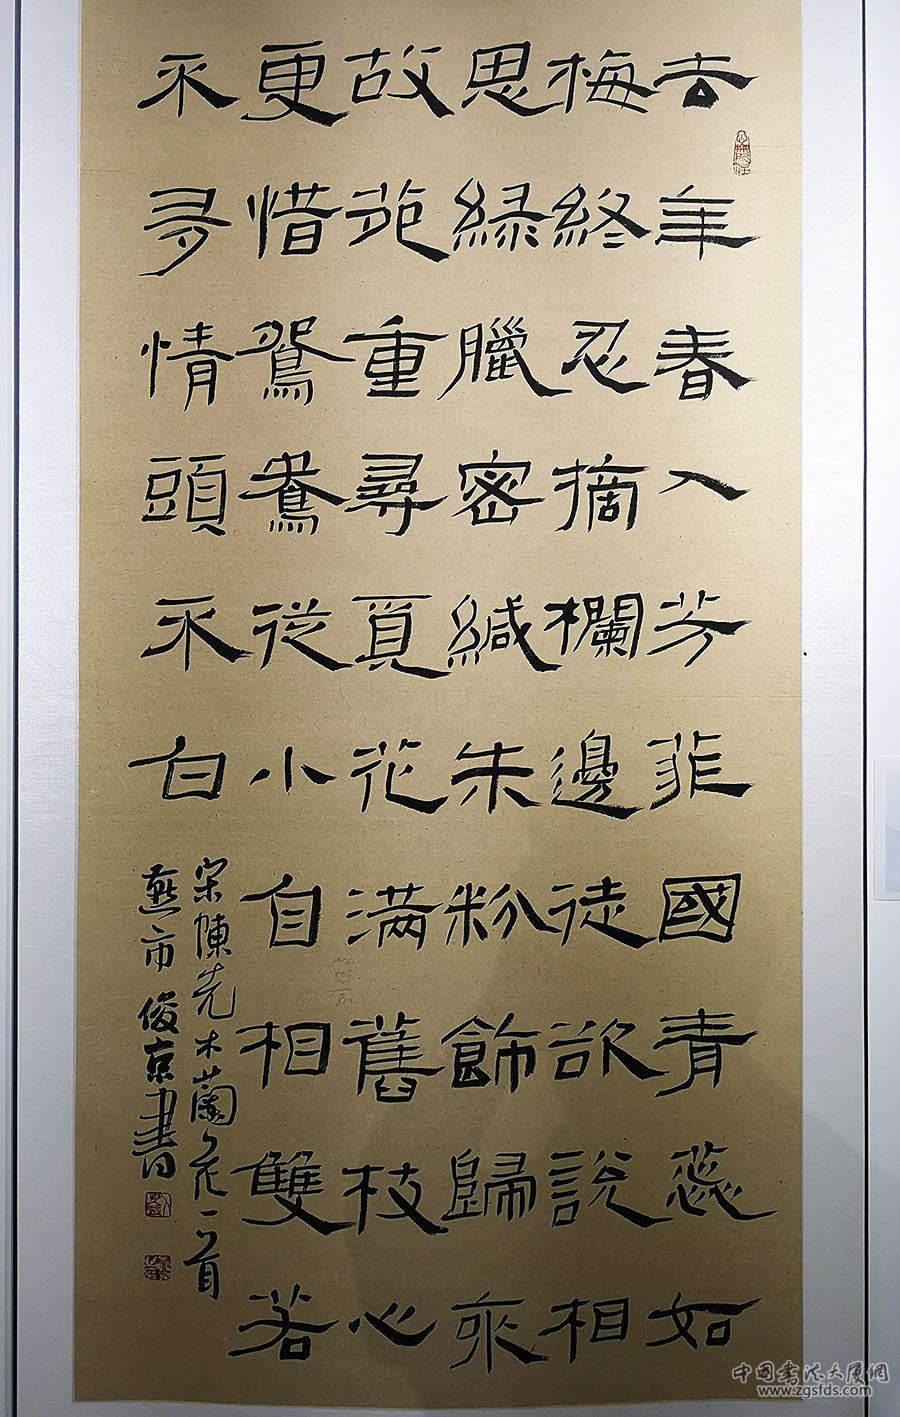 去年春入芳菲國青蕊如
梅終忍摘欄邊徒欲說相
思綠臘密緘朱粉飾歸來
故苑重尋覓花滿舊枝心
更惜鴛鴦從小自相雙若
不多情頭不白
宋陳先木蘭花一首
燕市俊京書
中國書法大厦網
www.zgsfds.com